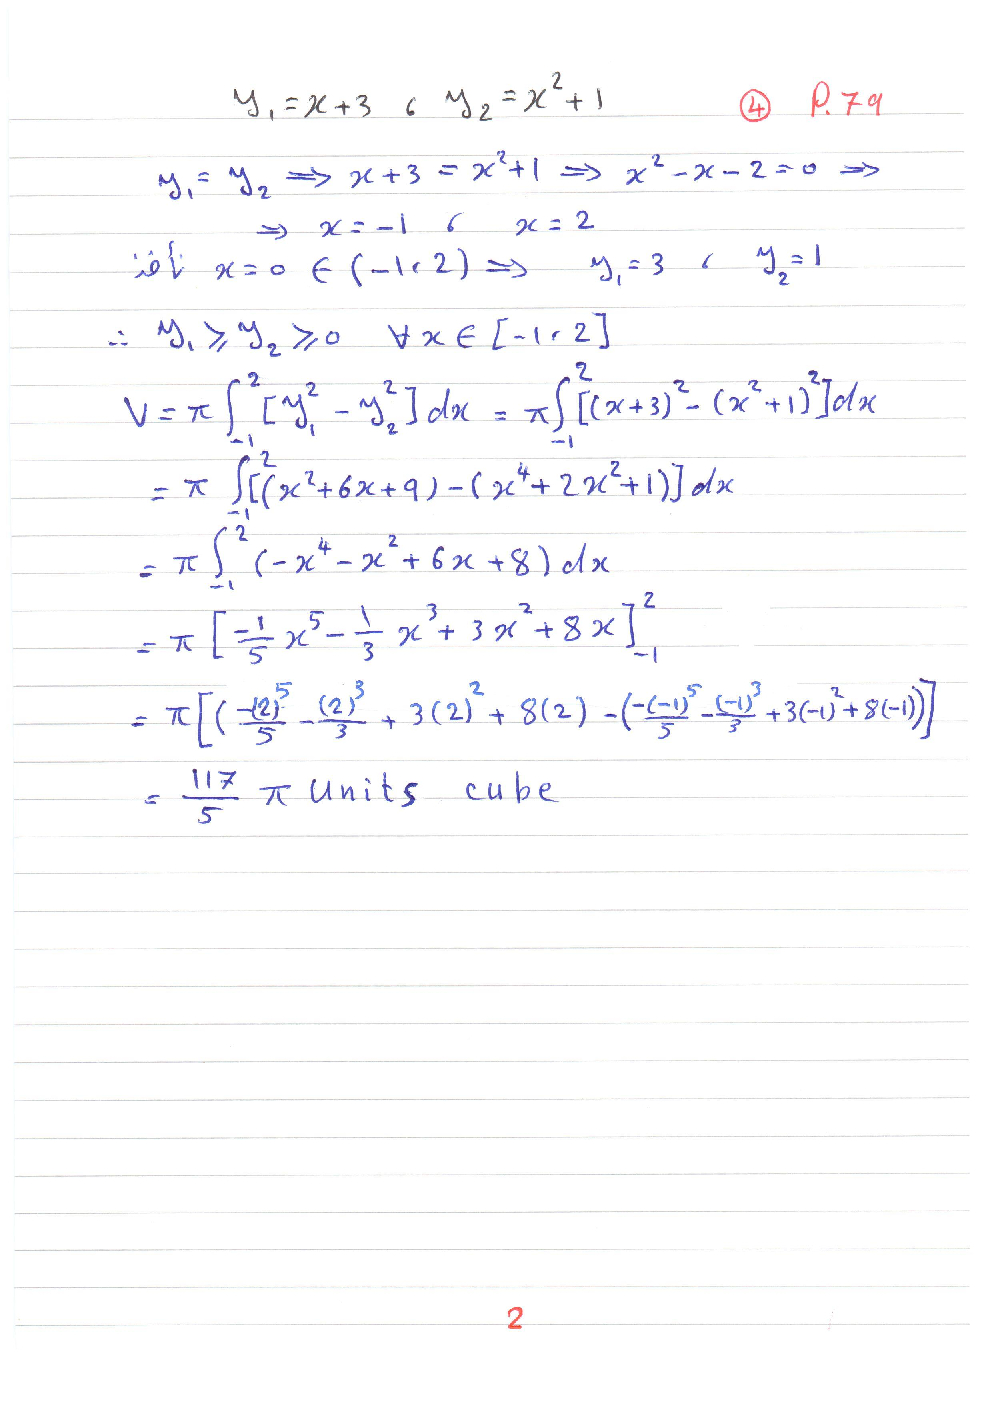 y₁ = x + 3 ، y₂ = x² + 1 ④ P.79
y₁ = y₂ ⟹ x + 3 = x² + 1 ⟹ x² - x - 2 = 0 ⟹
⟹ x = -1 ، x = 2
نأخذ x = 0 ∈ (-1، 2) ⟹ y₁ = 3 ، y₂ = 1
∴ y₁ ⩾ y₂ ⩾ 0 ∀ x ∈ [-1، 2]
V = π ∫₋₁² [y₁² - y₂²] dx = π ∫₋₁² [(x+3)² - (x²+1)²] dx
= π ∫₋₁² [(x² + 6x + 9) - (x⁴ + 2x² + 1)] dx
= π ∫₋₁² (-x⁴ - x² + 6x + 8) dx
= π [-1/5 x⁵ - 1/3 x³ + 3x² + 8x]₋₁²
= π [(-(2)⁵/5 - (2)³/3 + 3(2)² + 8(2) - (-(-1)⁵/5 - (-1)³/3 + 3(-1)² + 8(-1))]
= 117/5 π units cube
2